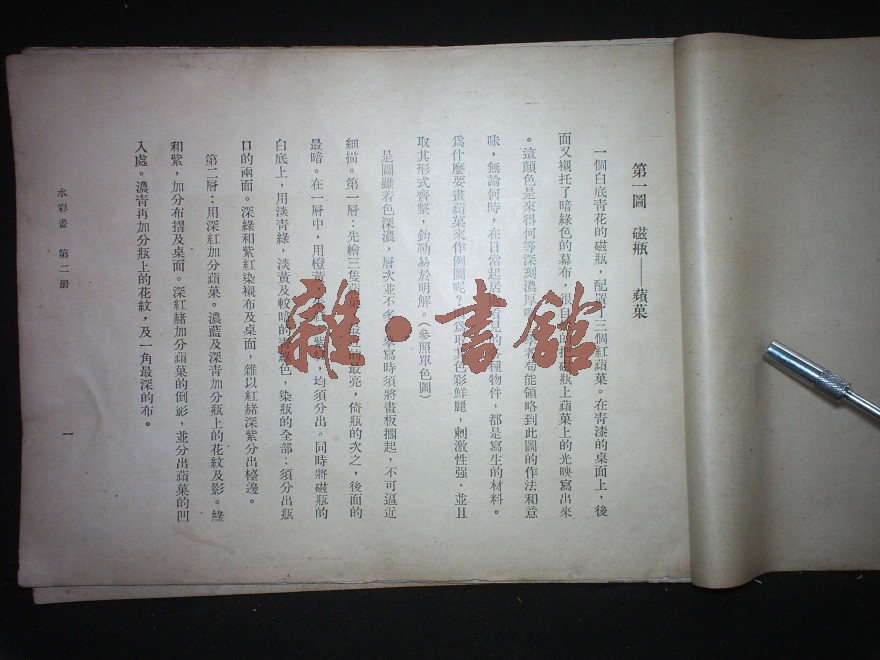 第一圖 磁瓶——蘋菓
一個白底青花的磁瓶，配置了三個紅蘋菓。在青漆的桌面上，後
面又襯托了暗綠色的幕布，很自 的把磁瓶上蘋菓上的光映寫出來
。這顏色是來得何等深刻濃厚 者苟能領略到此圖的作法和意
味，無論何時，在日常起居 看見的 種物件，都是寫生的材料。
爲什麼要畫蘋菓來作例圖呢？ 爲取其色彩鮮麗，刺激性强，並且
取其形式齊整，鈎勒易於明解。（參照單色圖）
是圖雖着色深濃，層次並不多 寫時須將畫板擱起，不可逼近
細描。第一層：先繪三隻蘋菓 最亮，倚瓶的次之，後面的
最暗。在一層中，用橙黃， 紫紅，均須分出。同時將磁瓶的
白底上，用淡青綠，淡黃及較暗的 綠色，染瓶的全部；須分出瓶
口的兩面。深綠和紫紅染襯布及桌面，雜以紅赭深紫分出檯邊。
第二層：用深紅加分蘋菓。濃藍及深青加分瓶上的花紋及影。綠
和紫，加分布摺及桌面。深紅赭加分蘋菓的倒影，並分出蘋菓的凹
入處。濃青再加分瓶上的花紋，及一角最深的布。
水彩畫 第二册
一
雜·書館